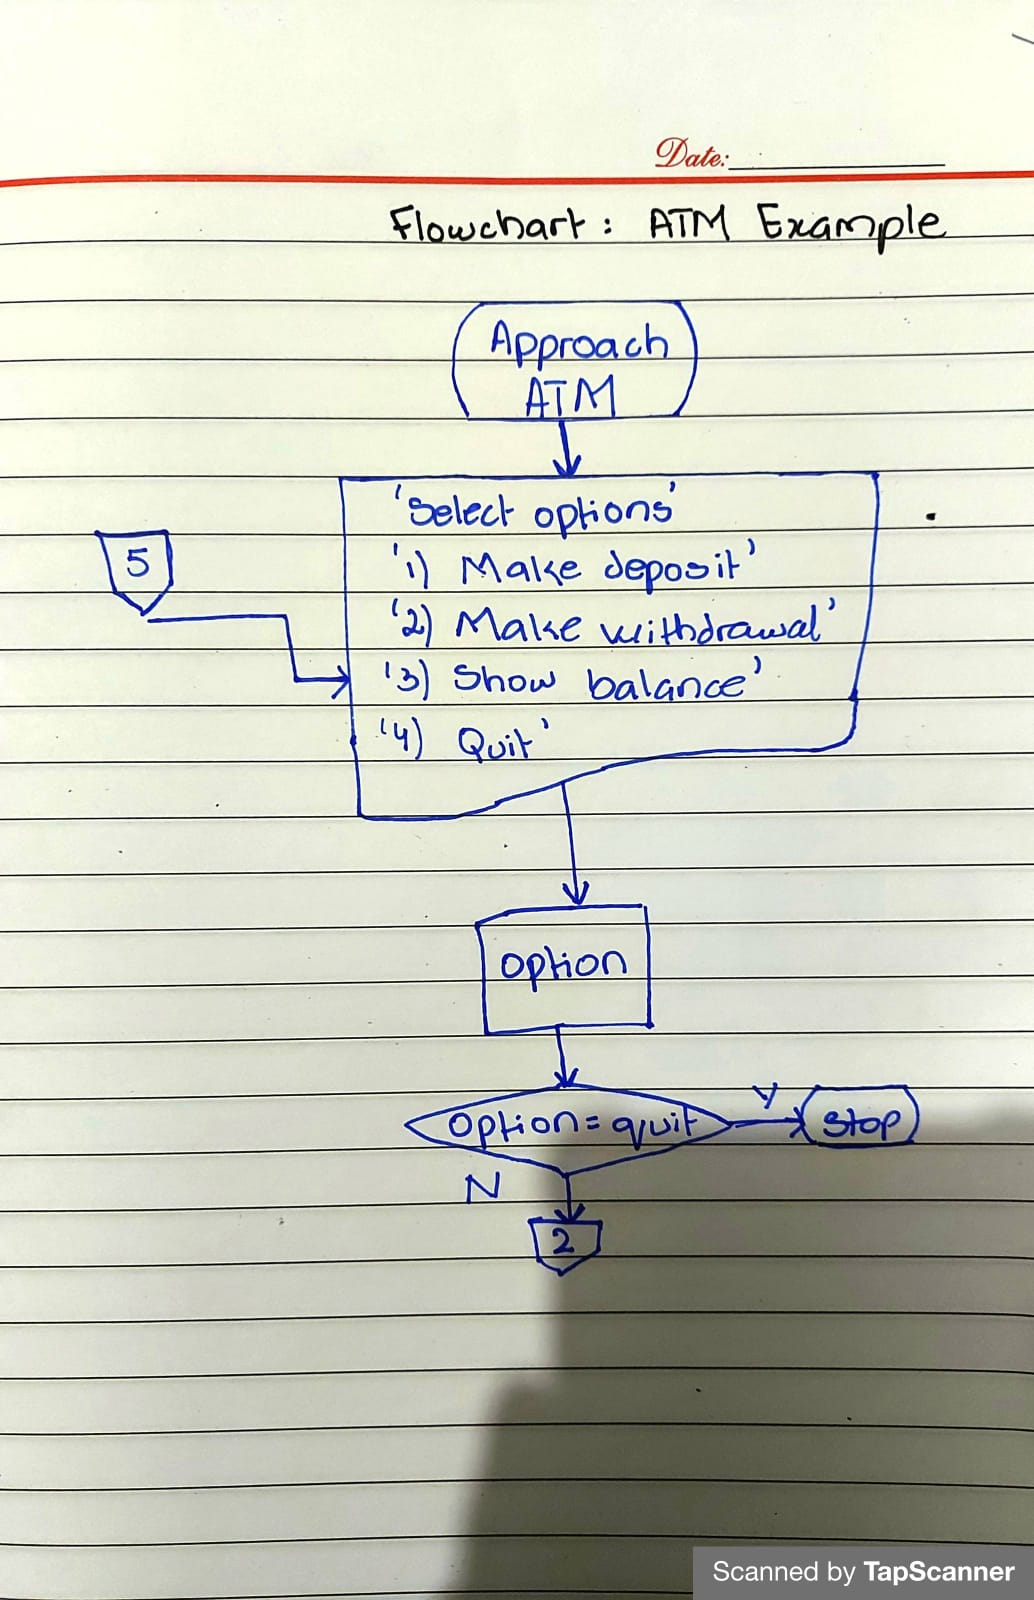 Date:
Flowchart: ATM Example
Approach
ATM
'Select options'
5
'1) Make deposit'
'2) Make withdrawal'
'3) Show balance'
'4) Quit'
option
option = quit
Y
Stop
N
2
Scanned by TapScanner